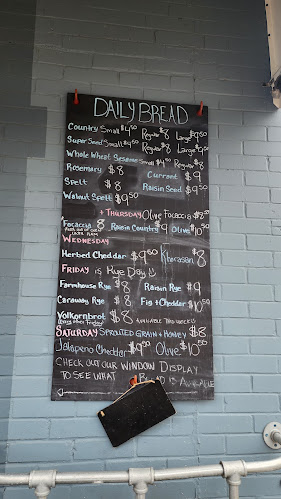 DAILY BREAD
Country Small $4.50 Regular $8 Large $9.50
Super Seed Small $4.50 Regular $8 Large $9.50
Whole Wheat Sesame Small $4.50 Regular $8
Rosemary $8 Currant $9
Spelt $8 Raisin Seed $9.50
Walnut Spelt $9.50
+ THURSDAY Olive Focaccia $8
Focaccia 8 Raisin Country $9 Olive $10.50
WEDNESDAY
Herbed Cheddar $9.50 Khorasan $8
FRIDAY is Rye Day!!
Farmhouse Rye $8 Raisin Rye $9
Caraway Rye $8 Fig + Cheddar $10.50
Volkornbrot $8 AVAILABLE THIS WEEK!!
SATURDAY SPROUTED GRAIN + HONEY $8
Jalapeno Cheddar $9.50 Olive $10.50
CHECK OUT OUR WINDOW DISPLAY
TO SEE WHAT BREAD IS AVAILABLE